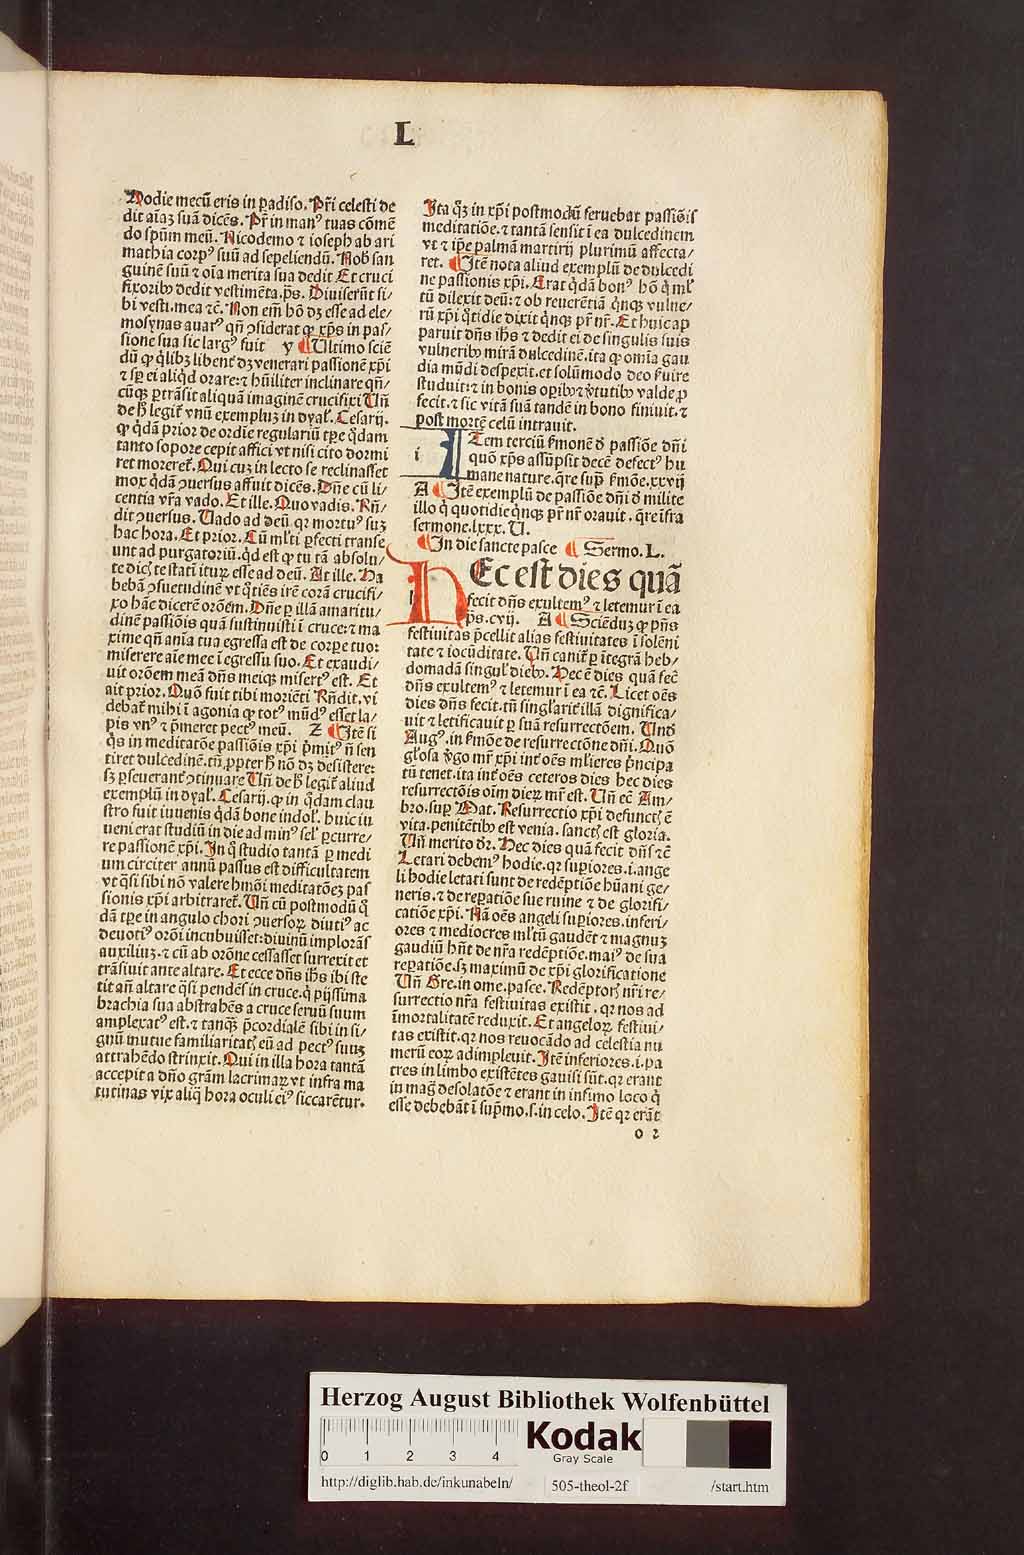 L
Hodie mecū eris in ꝑadiso. Pr̄i celesti de
dit aīaꝫ suā dicēs. Pr̄ in manꝰ tuas cōmē
do spūm meū. Nicodemo ⁊ ioseph ab ari
mathia corpꝰ suū ad sepeliendū. Nob̄ san
guinē suū ⁊ oīa merita sua dedit Et cruci
fixoribꝰ dedit vestimēta. ps̄. Diuiserūt si/
bi vesti. mea ⁊c̄. Non em̄ hō dꝫ esse ad ele/
mosynas auarꝰ qn̄ ꝯsiderat ꝙ xp̄s in pas/
sione sua sic largꝰ fuit y ¶ Ultimo sciē
dū ꝙ q̄libꝫ libent̄ dꝫ venerari passionē xp̄i
⁊ sꝑ ei aliqd̄ orare: ⁊ hūiliter inclinare qn̄/
cūqꝫ ꝑtrāsit aliquā imaginē crucifixi Un̄
de h̄ legit̄ vnū exempluꝫ in dyal̄. Cesarij.
ꝙ q̄dā prior de ordīe regulariū tꝑe q̄dam
tanto sopore cepit affici vt nisi cito dormi
ret moreret̄. Qui cuꝫ in lecto se reclinasset
mox q̄dā ꝯuersus affuit dicēs. Dn̄e cū li/
centia vr̄a vado. Et ille. Quo vadis. Rn̄/
dit ꝯuersus. Uado ad deū qꝛ mortuꝰ suꝫ
hac hora. Et prior. Cū ml̄ti ꝑfecti transe
unt ad purgatoriū. qd̄ est ꝙ tu tā absolu/
te dicꝭ te statī ituꝝ esse ad deū. At ille. Ha
bebā ꝯsuetudinē vt q̄tiēs irē corā crucifi/
xo hāc dicerē orōem. Dn̄e ꝑ illā amaritu/
dinē passiōis quā sustinuisti ī cruce: ⁊ ma
xime qn̄ anīa tua egressa est de corꝑe tuo:
miserere aīe mee ī egressu suo. Et exaudi/
uit orōem meā dn̄s meiqꝫ misertꝰ est. Et
ait prior. Quō fuit tibi moriēti Rn̄dit. vi
debat̄ mihi ī agonia ꝙ totꝰ mūdꝰ esset la/
pis vnꝰ ⁊ p̄meret pectꝰ meū. Z ¶ Itē si
q̄s in meditatōe passiōis xp̄i p̄mitꝰ n̄ sen
tiret dulcedinē. tn̄ ꝓpter h̄ nō dꝫ desistere:
sꝫ ꝑseuerant̄ ꝯtinuare Un̄ de h̄ legit̄ aliud
exemplū in dyal̄. Cesarij. ꝙ in q̄dam clau
stro fuit iuuenis q̄dā bone indolꝭ. huic iu
ueni erat studiū in die ad minꝰ sel̄ ꝑcurre/
re passionē xp̄i. In q̄ studio tantā ꝑ medi
um circiter annū passus est difficultatem
vt q̄si sibi nō valere hmōi meditatōeꝫ pas
sionis xp̄i arbitraret̄. Un̄ cū postmodū q̄
dā tꝑe in angulo chori ꝯuersoꝝ diutiꝰ ac
deuotiꝰ orōi incubuisset: diuinū implorās
auxiliuꝫ. ⁊ cū ab orōne cessasset surrexit et
trāsiuit ante altare. Et ecce dn̄s ih̄s ibi ste
tit añ altare q̄si pendēs in cruce. q̄ pijssima
brachia sua abstrahēs a cruce seruū suum
amplexatꝰ est. ⁊ tanqꝫ p̄cordialē sibi in si/
gnū mutue familiaritatꝭ eū ad pectꝰ suuꝫ
attrahēdo strinxit. Qui in illa hora tantā
accepit a dn̄o grām lacrimaꝝ vt infra ma
tutinas vix aliq̄ hora oculi eiꝰ siccarētur.
Ita q̄ꝫ in xp̄i postmodū seruebat passiōis
meditatiōe. ⁊ tantā sensit ī ea dulcedinem
vt ⁊ ip̄e palmā martirij plurimū affecta/
ret. ¶ Itē nota aliud exemplū de dulcedi
ne passionis xp̄i. Erat q̄dā bonꝰ hō q̄ ml̄
tū dilexit deū: ⁊ ob reuerētiā q̄nqꝫ vulne/
rū xp̄i q̄tidie dixit q̄nqꝫ pr̄ nr̄. Et huic ap
paruit dn̄s ih̄s ⁊ dedit ei de singulis suis
vulneribꝰ mirā dulcedinē. ita ꝙ omīa gau
dia mūdi despexit. et solūmodo deo ẜuire
studuit: ⁊ in bonis oꝑibꝰ ⁊ v̄tutibꝰ valde ꝓ
fecit. ⁊ sic vitā suā tandē in bono finiuit. ⁊
post mortē celū intrauit.
i ITem terciū ẜmonē d̄ passiōe dn̄i
quō xp̄s assūpsit decē defectꝰ hu
mane nature. qre supꝰ ẜmōe. xxvij
A ¶ Itē exemplū de passiōe dn̄i d̄ milite
illo q̄ quotidie q̄nqꝫ pr̄ nr̄ orauit. qre īfra
sermone. lxxx. U.
¶ In die sancte pasce ¶ Sermo. L.
HEc est dies quā
fecit dn̄s exultemꝰ ⁊ letemur ī ea
ps̄. cvij. A ¶ Sciēduꝫ ꝙ pn̄s
festiuitas p̄cellit alias festiuitates ī solēni
tate ⁊ iocūditate. Un̄ canit̄ ꝑ ītegrā heb/
domadā singul̄ diebꝰ. Hec ē dies quā fec̄
dn̄s exultemꝰ ⁊ letemur ī ea ⁊c̄. Licet oēs
dies dn̄s fecit. tn̄ singlarit̄ illā dignifica/
uit ⁊ letificauit ꝑ suā resurrectōem. Und̄
Augꝰ. in ẜmōe de resurrectōne dn̄i. Quō
gl̄osa v̄go mr̄ xp̄i int̄ oēs ml̄ieres p̄ncipa
tū tenet. ita int̄ oēs ceteros dies hec dies
resurrectōis oīm dieꝝ mr̄ est. Un̄ ec̄ Am/
bro. suꝑ Mat. Resurrectio xp̄i defunctꝭ ē
vita. penitētibꝰ est venia. sanctꝭ est gloria.
Un̄ merito dr̄. Hec dies quā fecit dn̄s ⁊c̄
Letari debemꝰ hodie. qꝛ suꝑiores. i. ange
li hodie letati sunt de redēptiōe hūani ge/
neris. ⁊ de reꝑatiōe sue ruine ⁊ de glorifi/
catiōe xp̄i. Nā oēs angeli suꝑiores. inferi/
ores ⁊ mediocres ml̄tū gaudēt ⁊ magnuꝫ
gaudiū hn̄t de nr̄a redēptiōe. maiꝰ de sua
reꝑatiōe. sꝫ maximū de xp̄i glorificatione
Un̄ Gre. in ome. pasce. Redēptorꝭ nr̄i re/
surrectio nr̄a festiuitas existit. qꝛ nos ad
īmortalitatē reduxit. Et angeloꝝ festiui/
tas existit. qꝛ nos reuocādo ad celestia nu
merū eoꝝ adimpleuit. Itē inferiores. i. pa
tres in limbo existētes gauisi sūt. qꝛ erant
in maḡ desolatōe ⁊ erant in infimo loco q̄
esse debebāt ī sup̄mo. s. in celo. Itē qꝛ erāt
o 2
Herzog August Bibliothek Wolfenbüttel
0 1 2 3 4
Kodak
Gray Scale
http://diglib.hab.de/inkunabeln/ 505-theol-2f /start.htm